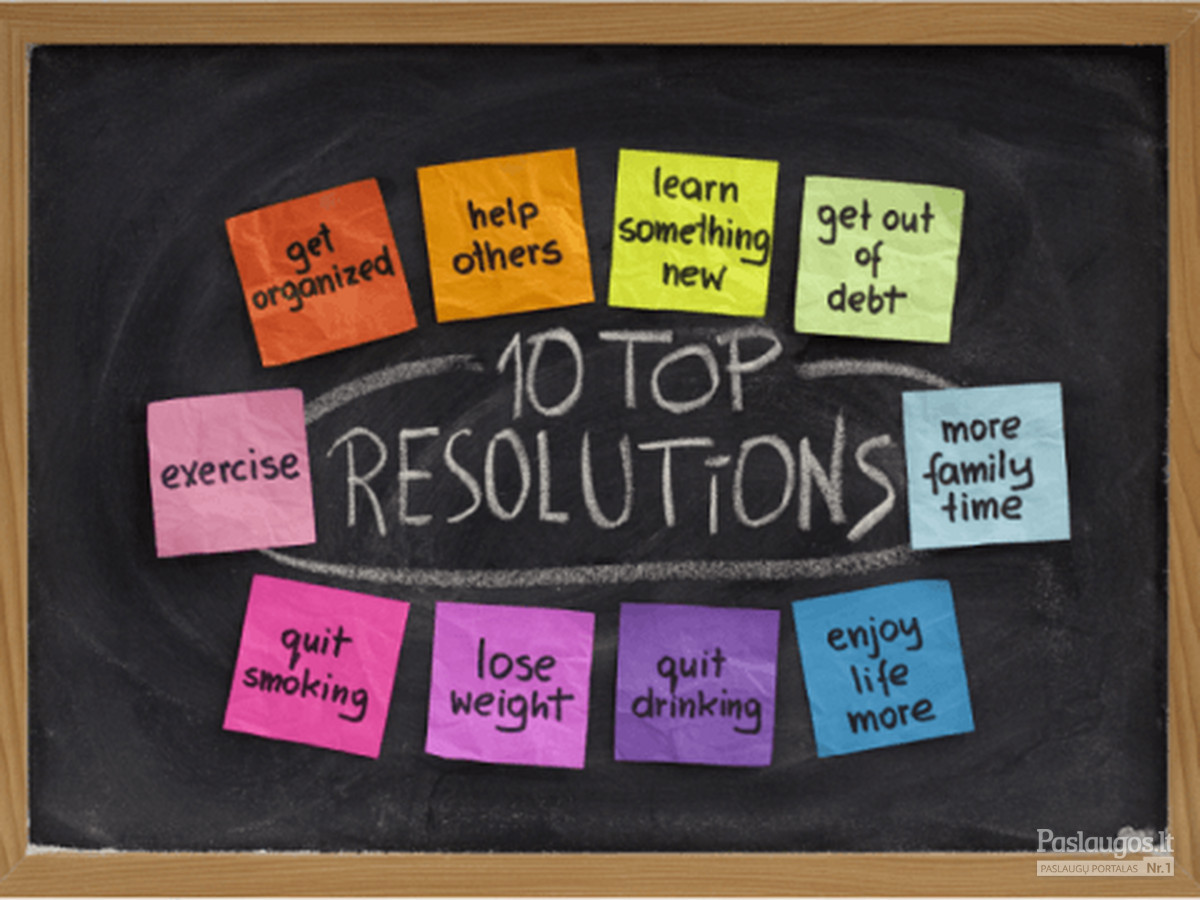 get
organized
help
others
learn
something
new
get out
of
debt
10 TOP
RESOLUTiONS
exercise
more
family
time
quit
smoking
lose
weight
quit
drinking
enjoy
life
more
Paslaugos.lt
PASLAUGŲ PORTALAS Nr.1